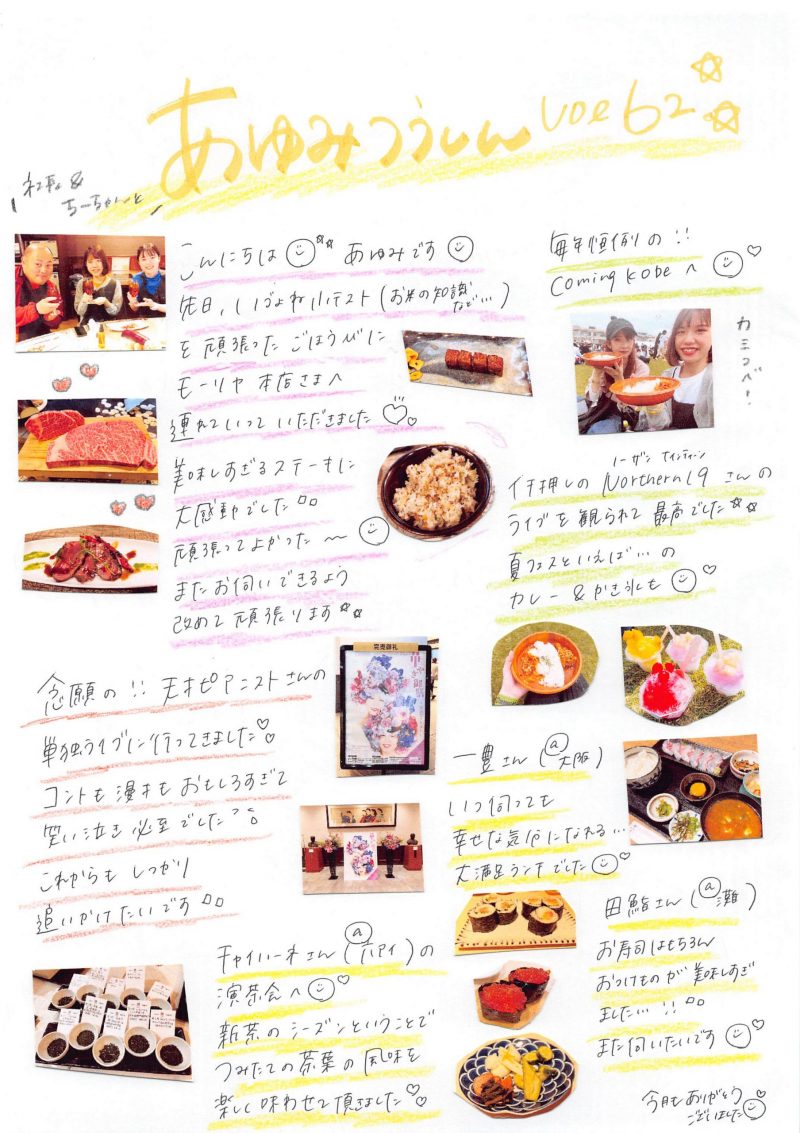 あゆみつうしん vol 62
社長 &
ちーちゃんと
こんにちは あゆみです
先日、いづよね小テスト(お米の知識
など…)
を頑張ったごほうびに
モーリヤ 本店さまへ
連れていっていただきました
美味しすぎるステーキに
大感動でした
頑張ってよかった〜
またお伺いできるよう
改めて頑張ります
毎年恒例の!!
Coming Kobe へ
カミコベ!
ノーザン ナインティーン
イチ押しの Northern19 さんの
ライブを観られて最高でした
夏フェスといえば…の
カレー & かき氷も
念願の!! 天才ピアニストさんの
単独ライブに行ってきました
コントも漫才もおもしろすぎて
笑い泣き必至でした
これからもしっかり
追いかけたいです
完売御礼
一豊さん(@大阪)
いつ伺っても
幸せな気分になれる…
大満足ランチでした
田鮨さん(@灘)
お寿司はもちろん
おつけものが美味しすぎ
ました…!!
また伺いたいです
チャイハーネさん(@六アイ)の
演茶会へ
新茶のシーズンということで
つみたての茶葉の風味を
楽しく味わせて頂きました
今月もありがとう
ございました